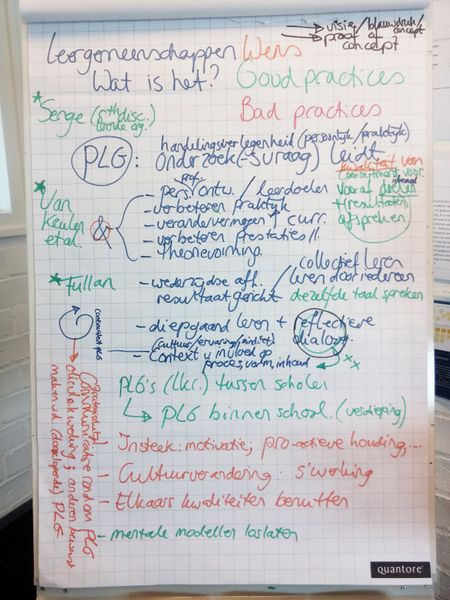 → visie/blauwdruk/concept
→ proof of concept
Leergemeenschappen Wens
Wat is het? Good practices
Bad practices
* Senge (5th disc.) lerende org.
handelingsverlegenheid (persoonlijk/praktijk)
PLG: Onderzoek(→svraag) leidt
kwaliteit van
commitment voor.
vooraf doelen
+ (resultaten)
afspreken
* Van Keulen et al. &
prof.
- pers. ontw. / leerdoelen
- verbeteren praktijk
- veranderingen curr.
- verbeteren prestaties ll.
- theorievorming.
* Fullan
- wederzijdse afh. / collectief leren
resultaatgericht / leren door iedereen
dezelfde taal spreken
- diepgaand leren + reflectieve dialoog.
(cultuur/ervaring/
- Context v invloed op
proces, vorm, inhoud
PLG's (lkr.) tussen scholen
↳ PLG binnen school. (verdieping)
- Insteek: motivatie, pro-actieve houding,...
- Cultuurverandering: s'working
- Elkaars kwaliteiten benutten
- mentale modellen loslaten
Communicatie rond om PLG
olievlekwerking; anderen bewust
maken v.d. PLG
quantore®